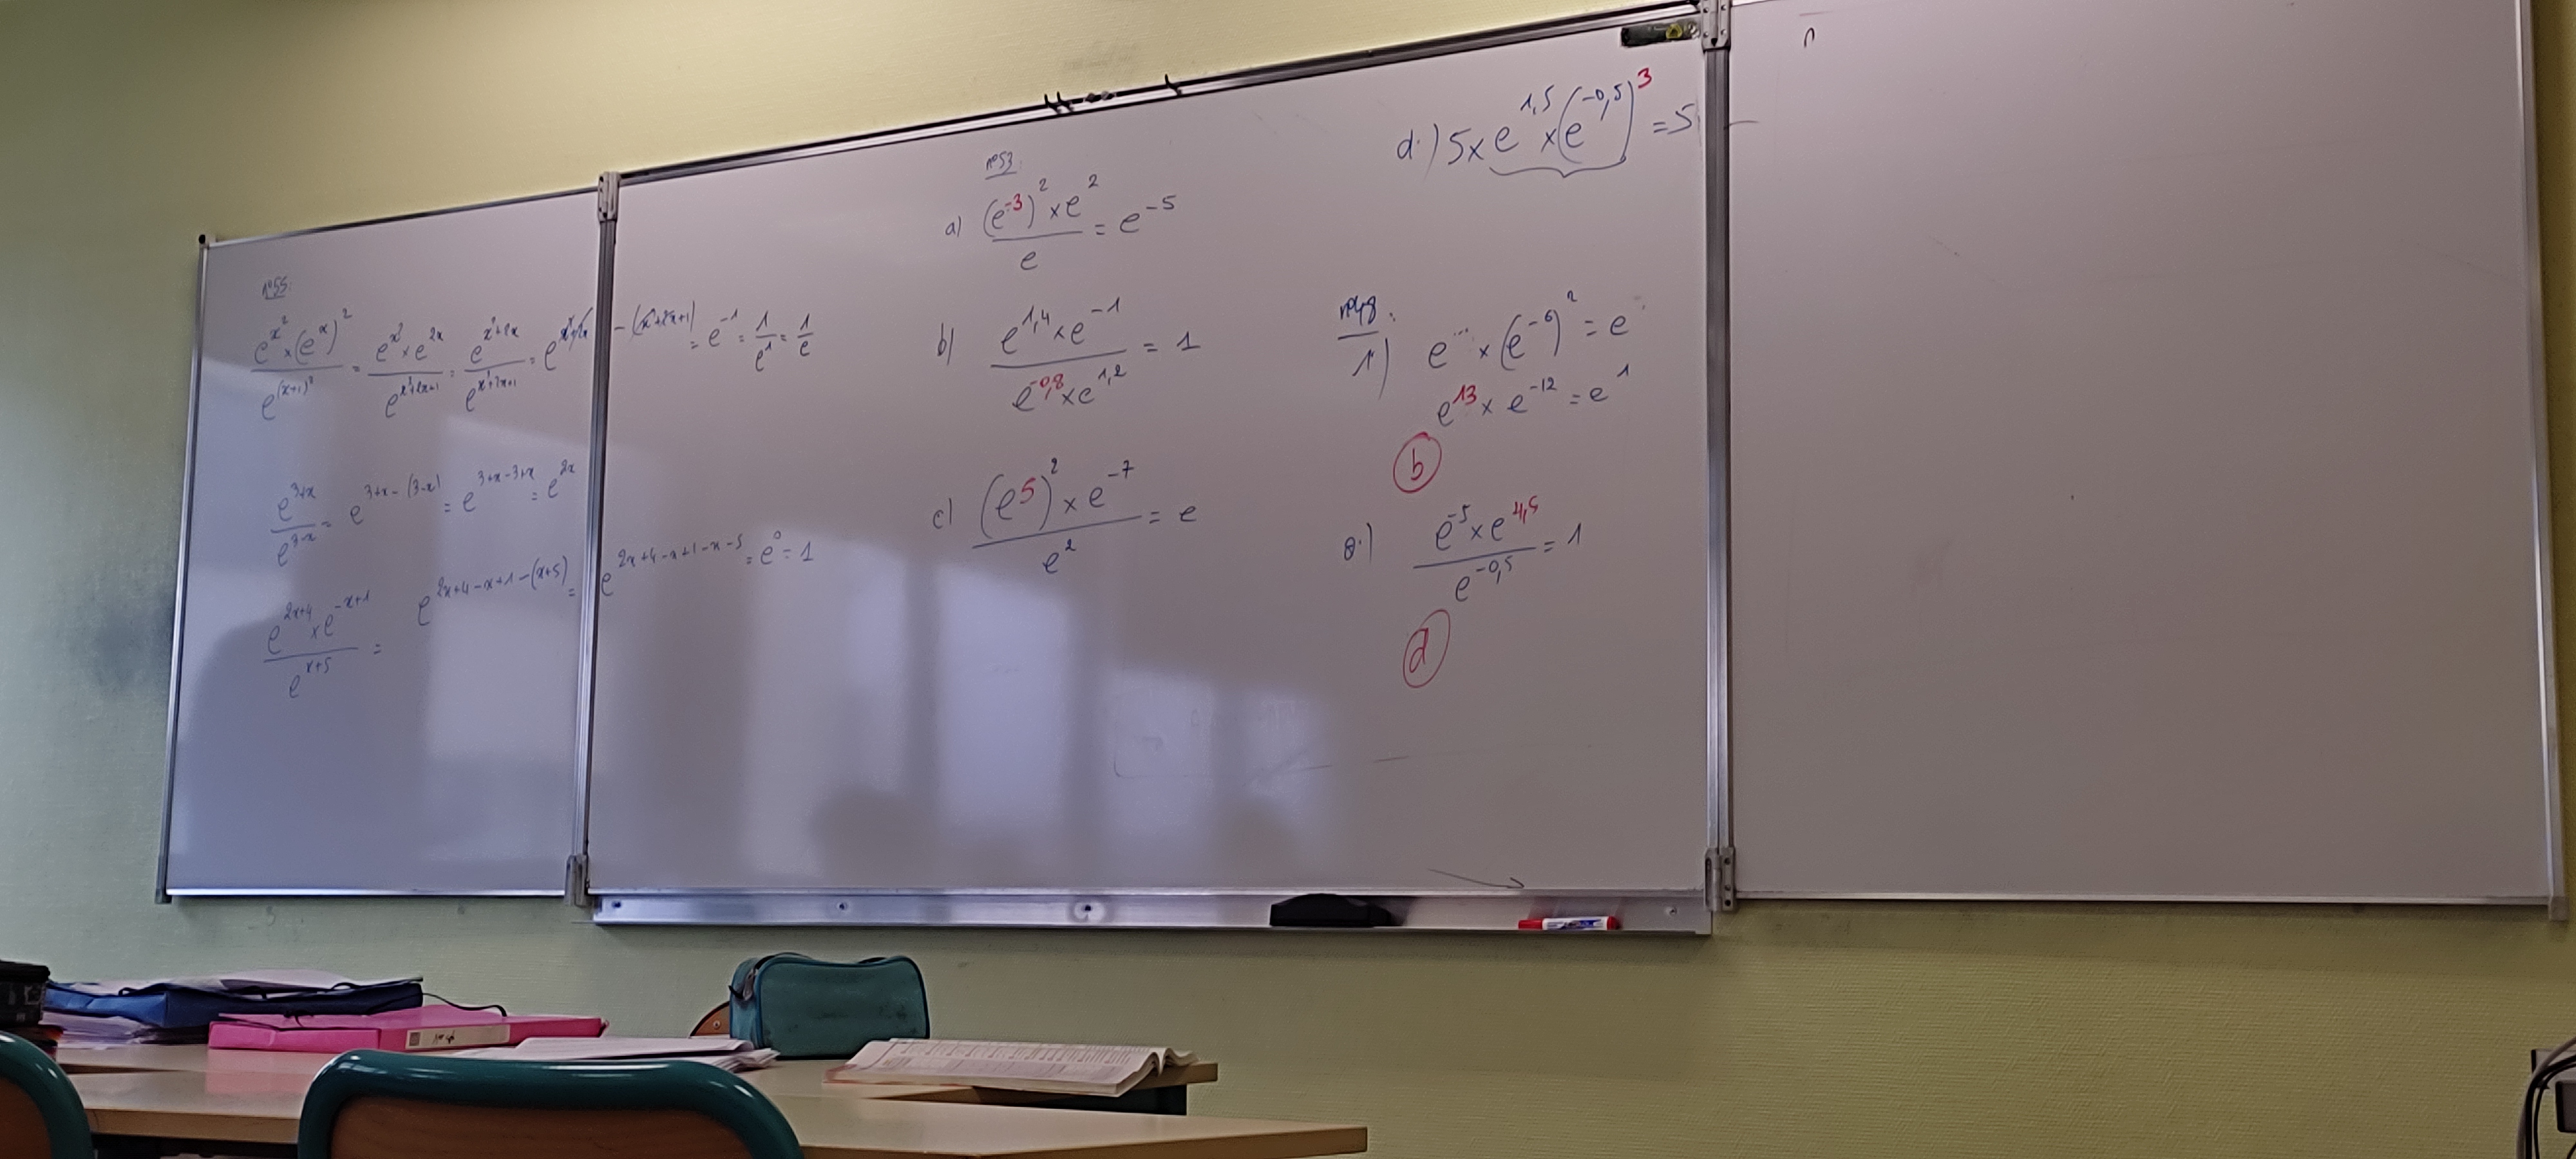 n°55.
e^{x^2} × (e^x)^2 / e^{(x+1)^2} = e^{x^2} × e^{2x} / e^{x^2+2x+1} = e^{x^2+2x} / e^{x^2+2x+1} = e^{x^2+2x - (x^2+2x+1)} = e^{-1} = 1/e^1 = 1/e
e^{3+x} / e^{3-x} = e^{3+x-(3-x)} = e^{3+x-3+x} = e^{2x}
e^{2x+4} × e^{-x+1} / e^{x+5} = e^{2x+4-x+1-(x+5)} = e^{2x+4-x+1-x-5} = e^0 = 1
n°53.
a) (e^{-3})^2 × e^2 / e = e^{-5}
b) e^{1,4} × e^{-1} / e^{-0,8} × e^{1,2} = 1
c) (e^5)^2 × e^{-7} / e^2 = e
d.) 5 × e^{1,5} × (e^{-0,5})^3 = 5
n°48.
1) e^{...} × (e^{-6})^2 = e
e^{13} × e^{-12} = e^1
b
2.) e^{-5} × e^{4,5} / e^{-0,5} = 1
d